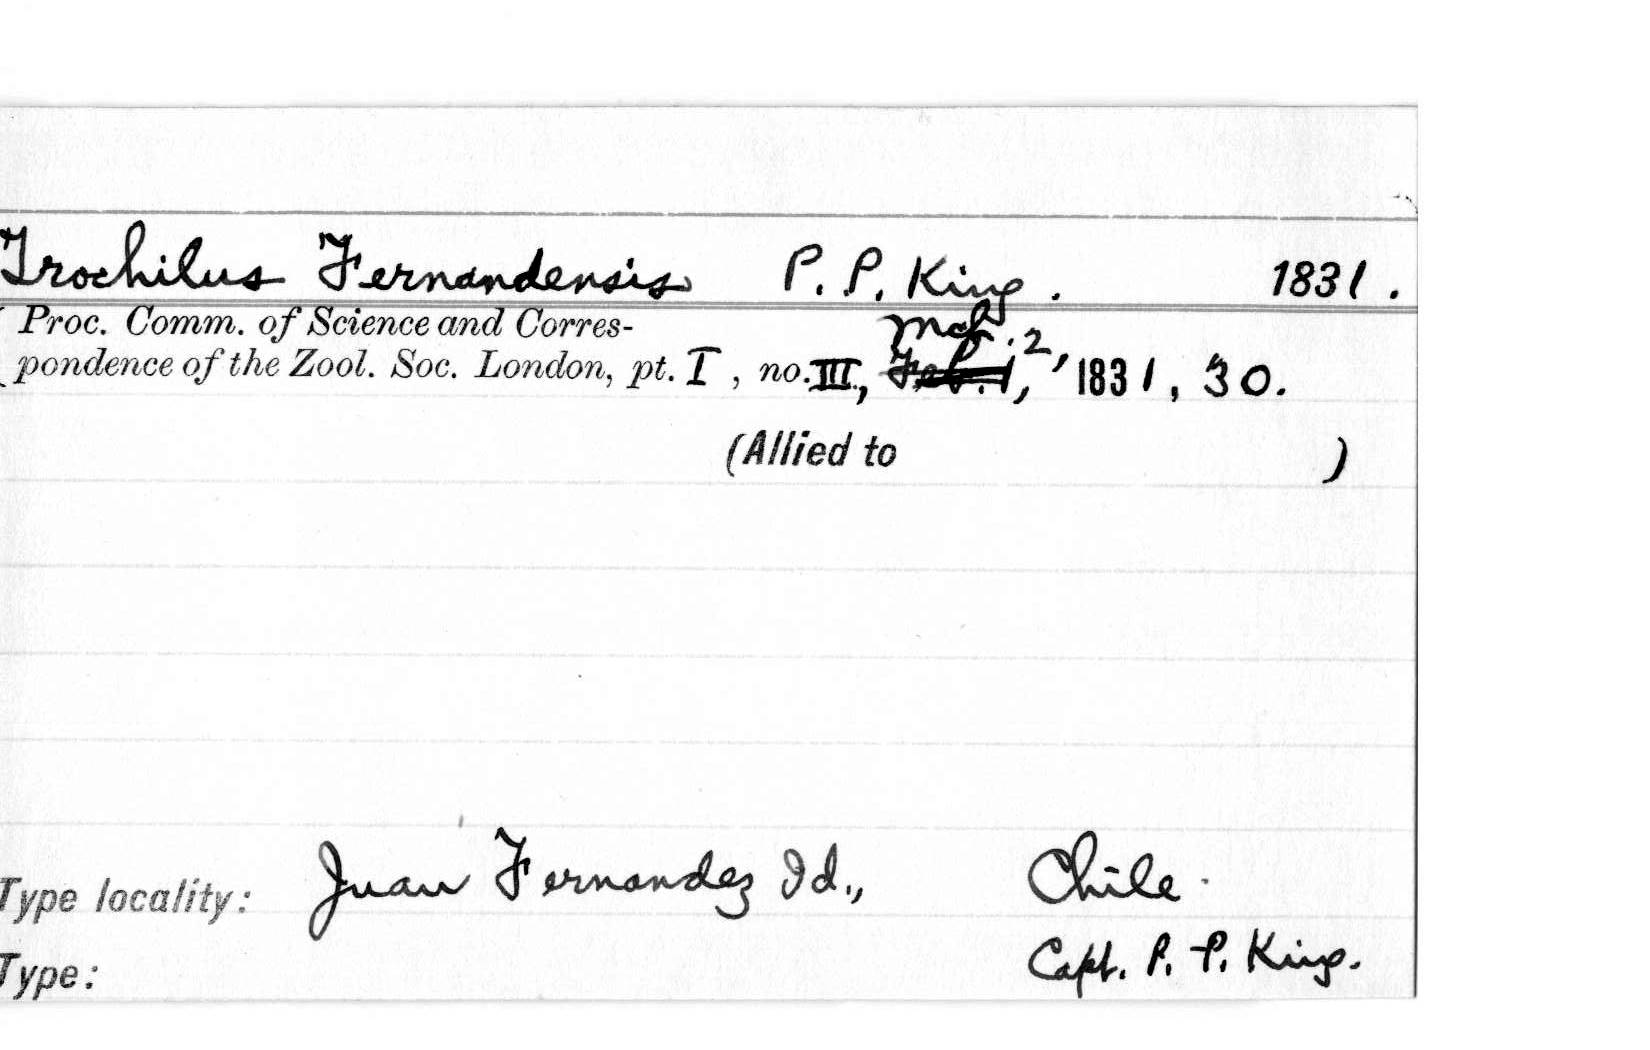 Trochilus Fernandensis P. P. King. 1831.
( Proc. Comm. of Science and Corres-
Mch. 2,
( pondence of the Zool. Soc. London, pt. I, no. III, Feb. 1, 1831, 30.
(Allied to )
Type locality: Juan Fernandez Id., Chile.
Type: Capt. P. P. King.